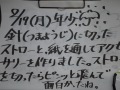 9/19(月)年少
針(つまようじ)に切った
ストローと、紙を通してアクセ
サリーを作りました。ストロー
を切ったらピーッと飛んで
面白かったね。